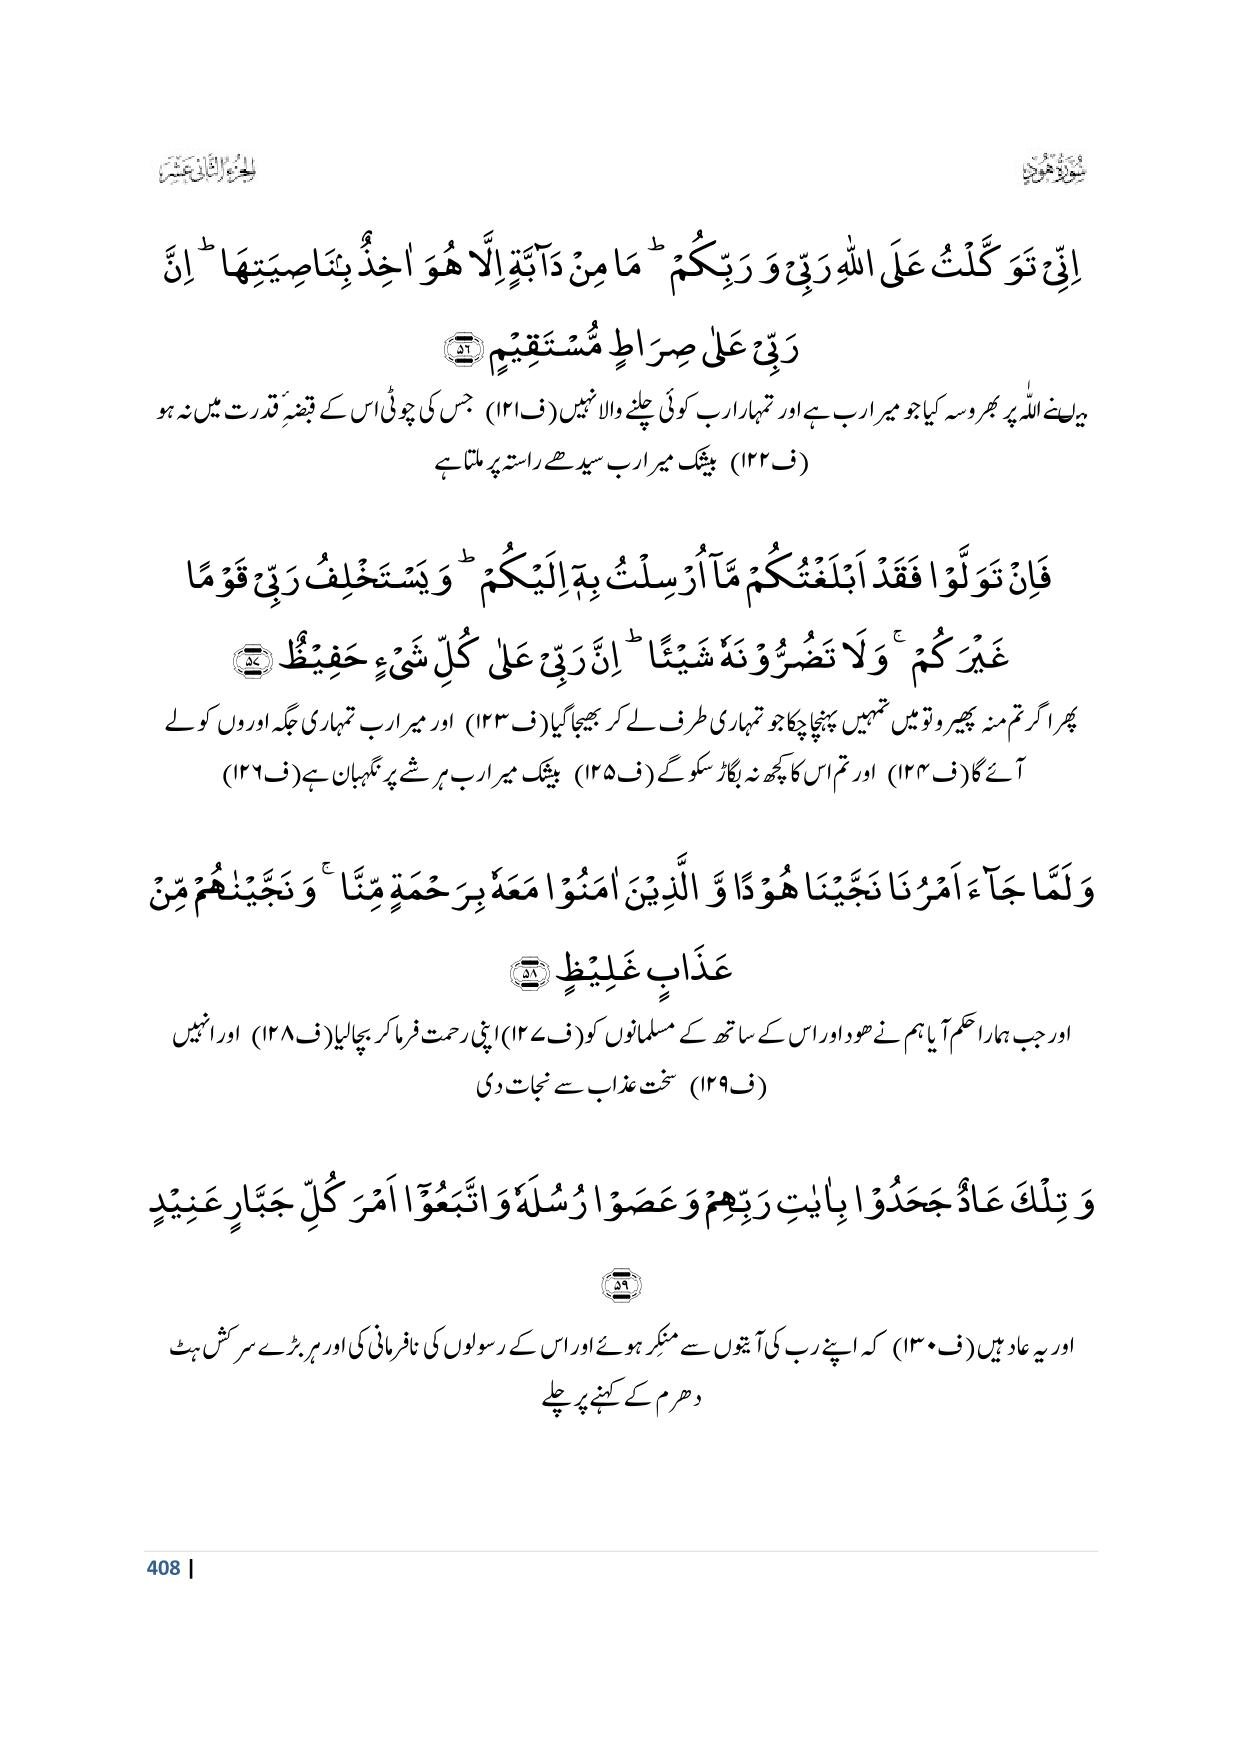 سُوْرَةُ هُوْدٍ
الجزء الثانی عشر
اِنِّیْ تَوَكَّلْتُ عَلَی اللّٰهِ رَبِّیْ وَ رَبِّكُمْ ؕ مَا مِنْ دَآبَّةٍ اِلَّا هُوَ اٰخِذٌۢ بِنَاصِیَتِهَا ؕ اِنَّ
رَبِّیْ عَلٰی صِرَاطٍ مُّسْتَقِیْمٍ ﴿۵۶﴾
میں نے اللّٰہ پر بھروسہ کیا جو میرا رب ہے اور تمہارا رب کوئی چلنے والا نہیں (ف۱۲۱) جس کی چوٹی اس کے قبضۂِ قدرت میں نہ ہو
(ف۱۲۲) بیشک میرا رب سیدھے راستہ پر ملتا ہے
فَاِنْ تَوَلَّوْا فَقَدْ اَبْلَغْتُكُمْ مَّاۤ اُرْسِلْتُ بِهٖۤ اِلَیْكُمْ ؕ وَ یَسْتَخْلِفُ رَبِّیْ قَوْمًا
غَیْرَكُمْ ۚ وَلَا تَضُرُّوْنَهٗ شَیْـًٔا ؕ اِنَّ رَبِّیْ عَلٰی كُلِّ شَیْءٍ حَفِیْظٌ ﴿۵۷﴾
پھر اگر تم منہ پھیرو تو میں تمہیں پہنچا چکا جو تمہاری طرف لے کر بھیجا گیا (ف۱۲۳) اور میرا رب تمہاری جگہ اوروں کو لے
آئے گا (ف۱۲۴) اور تم اس کا کچھ نہ بگاڑ سکو گے (ف۱۲۵) بیشک میرا رب ہر شے پر نگہبان ہے (ف۱۲۶)
وَ لَمَّا جَآءَ اَمْرُنَا نَجَّیْنَا هُوْدًا وَّ الَّذِیْنَ اٰمَنُوْا مَعَهٗ بِرَحْمَةٍ مِّنَّا ۚ وَ نَجَّیْنٰهُمْ مِّنْ
عَذَابٍ غَلِیْظٍ ﴿۵۸﴾
اور جب ہمارا حکم آیا ہم نے ھود اور اس کے ساتھ کے مسلمانوں کو (ف۱۲۷) اپنی رحمت فرما کر بچالیا (ف۱۲۸) اور انہیں
(ف۱۲۹) سخت عذاب سے نجات دی
وَ تِلْكَ عَادٌ جَحَدُوْا بِاٰیٰتِ رَبِّهِمْ وَ عَصَوْا رُسُلَهٗ وَ اتَّبَعُوْۤا اَمْرَ كُلِّ جَبَّارٍ عَنِیْدٍ
﴿۵۹﴾
اور یہ عاد ہیں (ف۱۳۰) کہ اپنے رب کی آیتوں سے منکِر ہوئے اور اس کے رسولوں کی نافرمانی کی اور ہر بڑے سرکش ہٹ
دھرم کے کہنے پر چلے
408 |